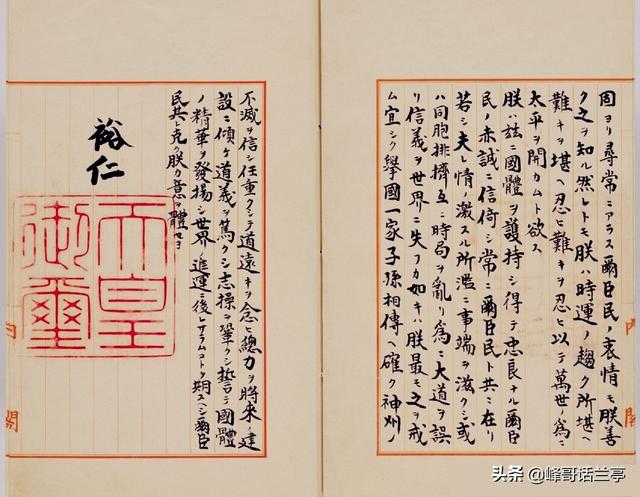 固ヨリ尋常ニアラス爾臣民ノ衷情モ朕善
ク之ヲ知ル然レトモ朕ハ時運ノ趨ク所堪ヘ
難キヲ堪ヘ忍ヒ難キヲ忍ヒ以テ萬世ノ爲ニ
太平ヲ開カムト欲ス
朕ハ茲ニ國體ヲ護持シ得テ忠良ナル爾臣
民ノ赤誠ニ信倚シ常ニ爾臣民ト共ニ在リ
若シ夫レ情ノ激スル所濫ニ事端ヲ滋クシ或
ハ同胞排擠互ニ時局ヲ亂リ爲ニ大道ヲ誤
リ信義ヲ世界ニ失フカ如キハ朕最モ之ヲ戒
ム宜シク擧國一家子孫相傳ヘ確ク神州ノ
不滅ヲ信シ任重クシテ道遠キヲ念ヒ總力ヲ將來ノ建
設ニ傾ケ道義ヲ篤クシ志操ヲ鞏クシ誓テ國體
ノ精華ヲ發揚シ世界ノ進運ニ後レサラムコトヲ期スヘシ爾臣
民其レ克ク朕カ意ヲ體セヨ
裕仁
天皇
御璽
头条 @峰哥话兰亭